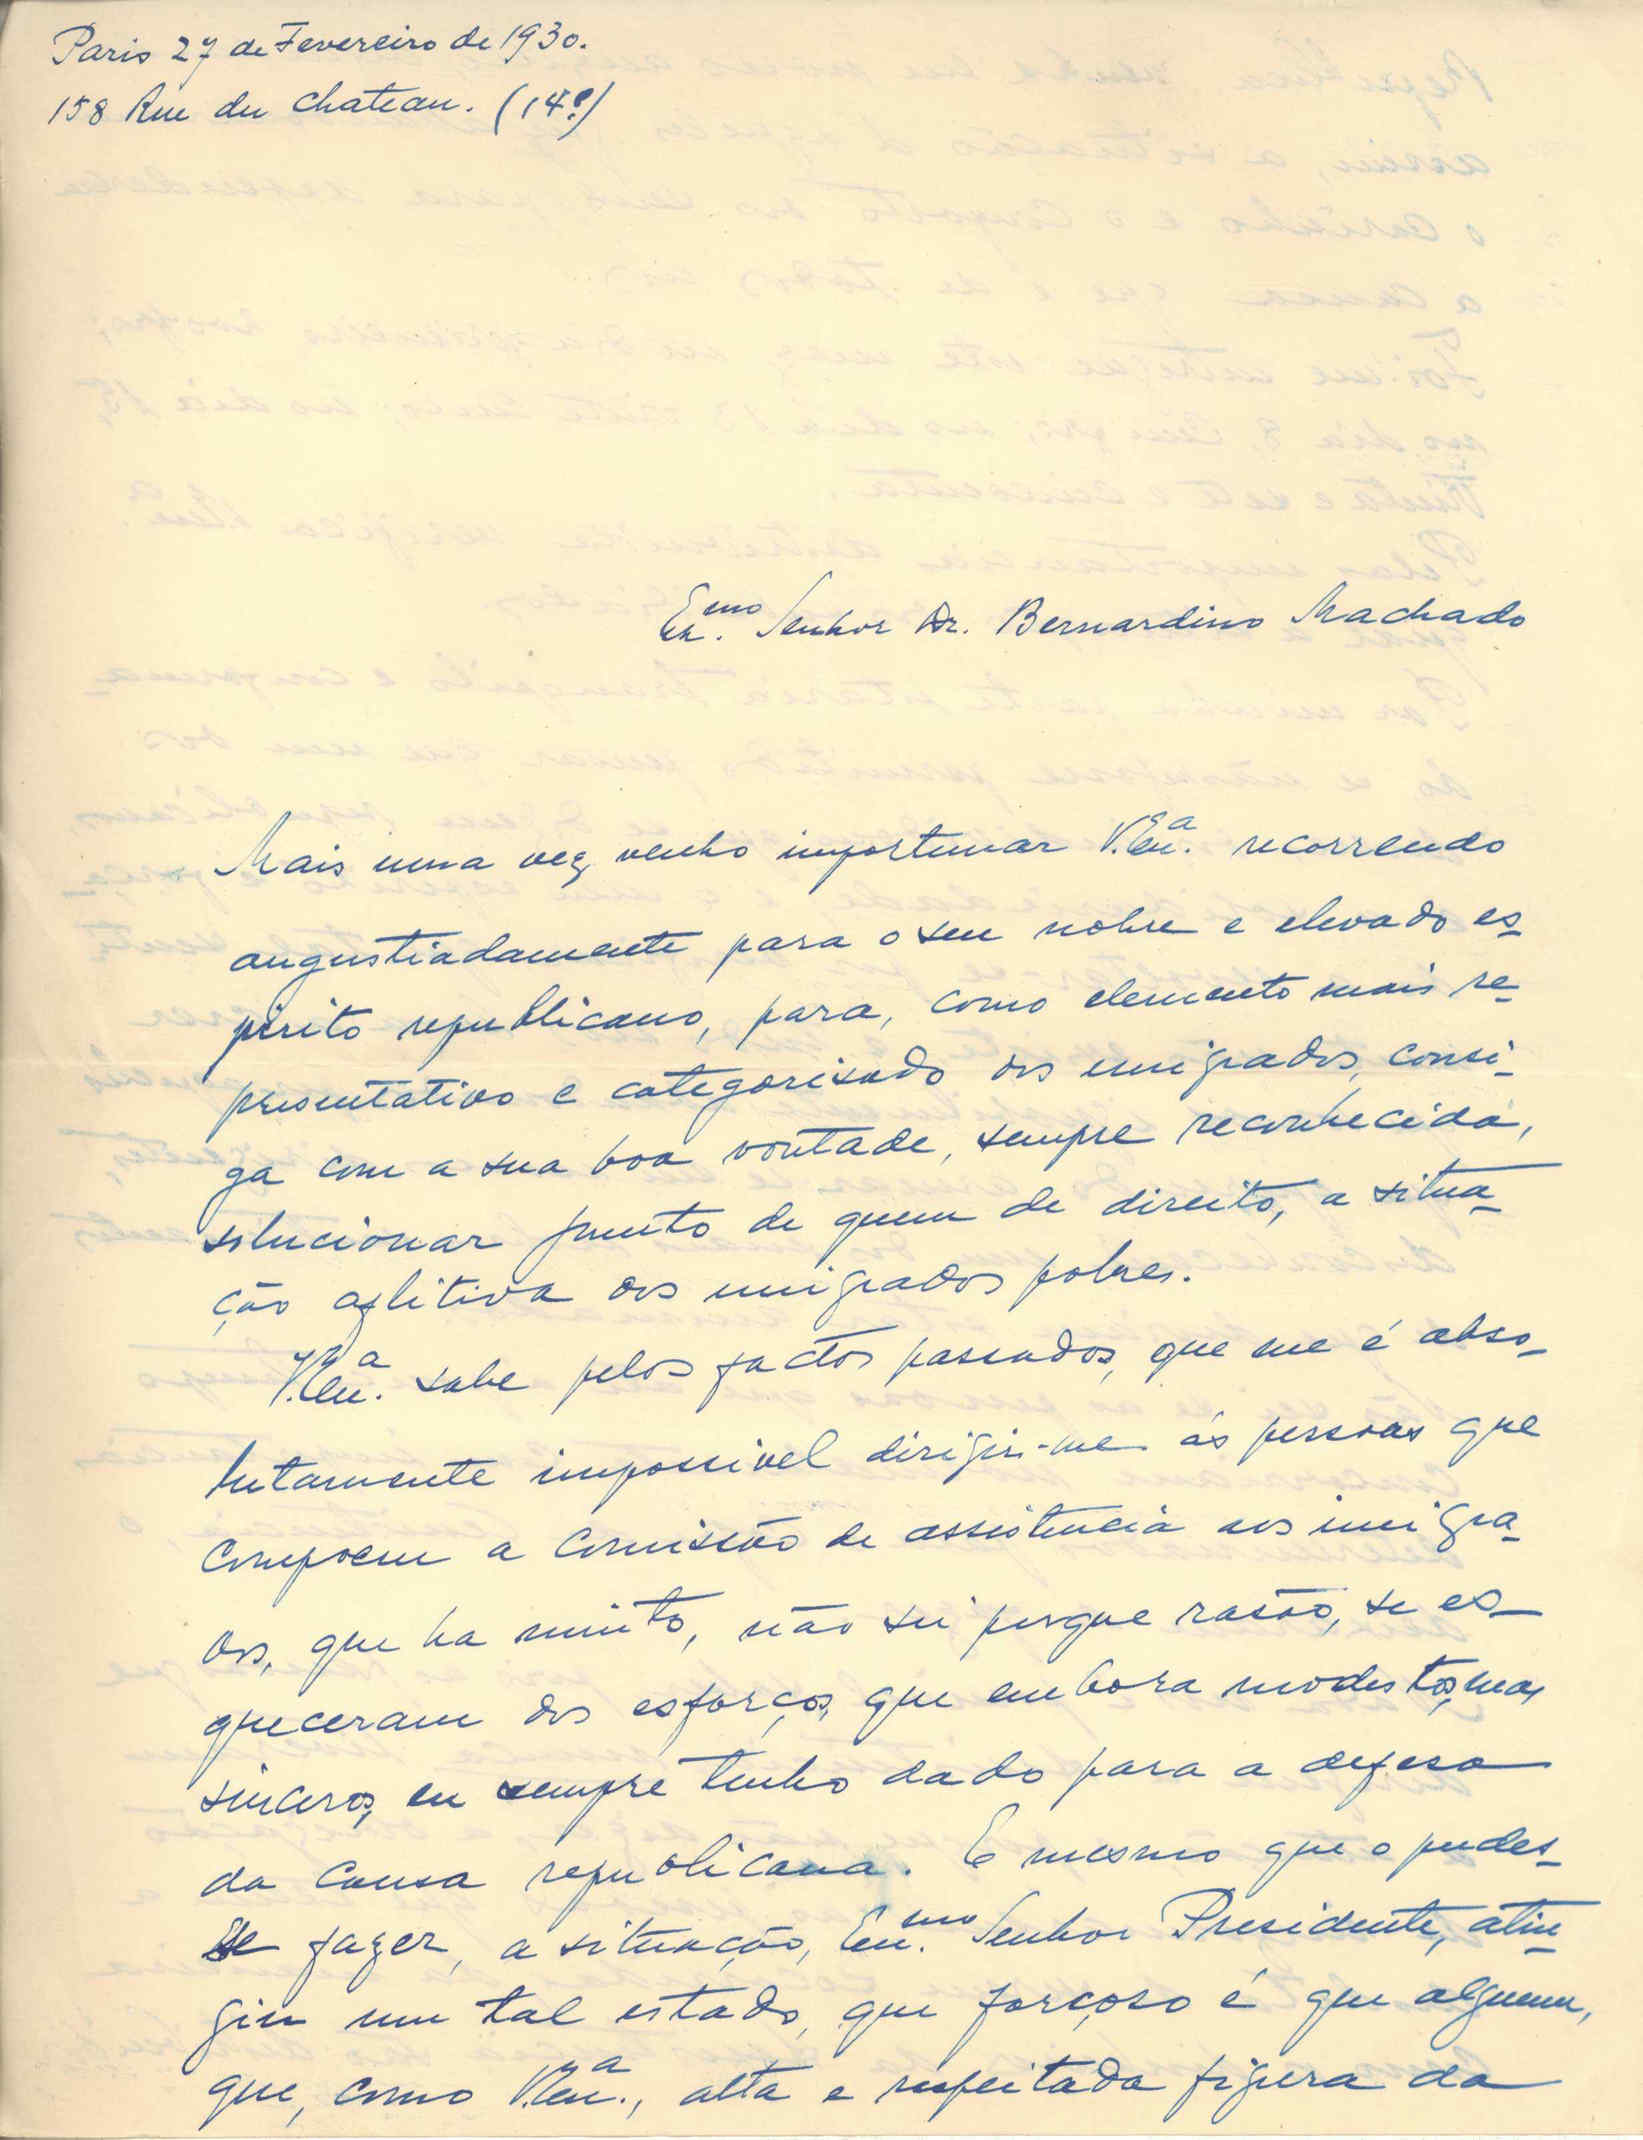 Paris 27 de Fevereiro de 1930.
158 Rue du Chateau. (14º)
Exmo. Senhor Dr. Bernardino Machado
Mais uma vez, venho importunar V.Exª. recorrendo
angustiadamente para o seu nobre e elevado es-
pirito republicano, para, como elemento mais re-
presentativo e categorisado dos emigrados, consi-
ga com a sua boa vontade, sempre reconhecida,
solucionar junto de quem de direito, a situa-
ção aflitiva dos emigrados pobres.
V.Exª. sabe pelos factos passados, que me é abso-
lutamente impossivel dirigir-me ás pessoas que
compoem a comissão de assistencia aos imigra-
dos, que ha muito, não sei porque rasão, se es-
queceram dos esforços, que embora modestos, mas
sinceros, eu sempre tenho dado para a defesa
da causa republicana. E mesmo que o pudes-
se fazer, a situação, Exmo. Senhor Presidente, atin-
giu um tal estado, que forçoso é que alguem,
que, como V.Exª., alta e respeitada figura da